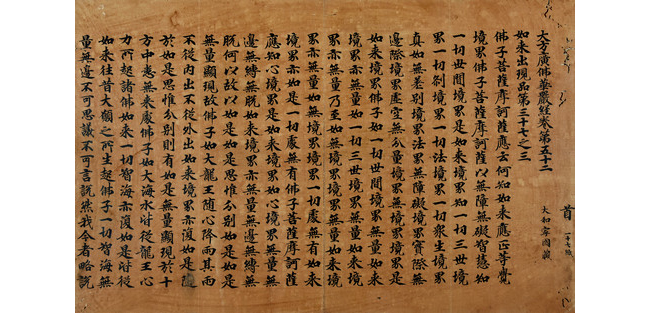 首
大和寧國藏
大方廣佛華嚴經卷第五十二
如來出現品第三十七之三
佛子菩薩摩訶薩應云何知如來應正等覺
境界佛子菩薩摩訶薩以無障無礙智慧知
一切世間境界是如來境界知一切三世境
界一切刹境界一切法境界一切衆生境界
真如無差別境界法界無障礙境界實際無
邊際境界虛空無分量境界無境界境界是
如來境界佛子如一切世間境界無量如來
境界亦無量如一切三世境界無量如來境
界亦無量乃至如無境界境界無量如來境
界亦無量如無境界境界一切處無有如來
境界亦如是一切處無有佛子菩薩摩訶薩
應知心境界是如來境界如心境界無量無
邊無縛無脫如來境界亦無量無邊無縛無
脫何以故以如是如是思惟分別如是如是
無量顯現故佛子如大龍王隨心降雨其雨
不從內出不從外出如來境界亦復如是隨
於如是思惟分別則有如是無量顯現於十
方中悉無來處佛子如大海水皆從龍王心
力所起諸佛如來一切智海亦復如是皆從
如來往昔大願之所生起佛子一切智海無
量無邊不可思議不可言說然我今者略說